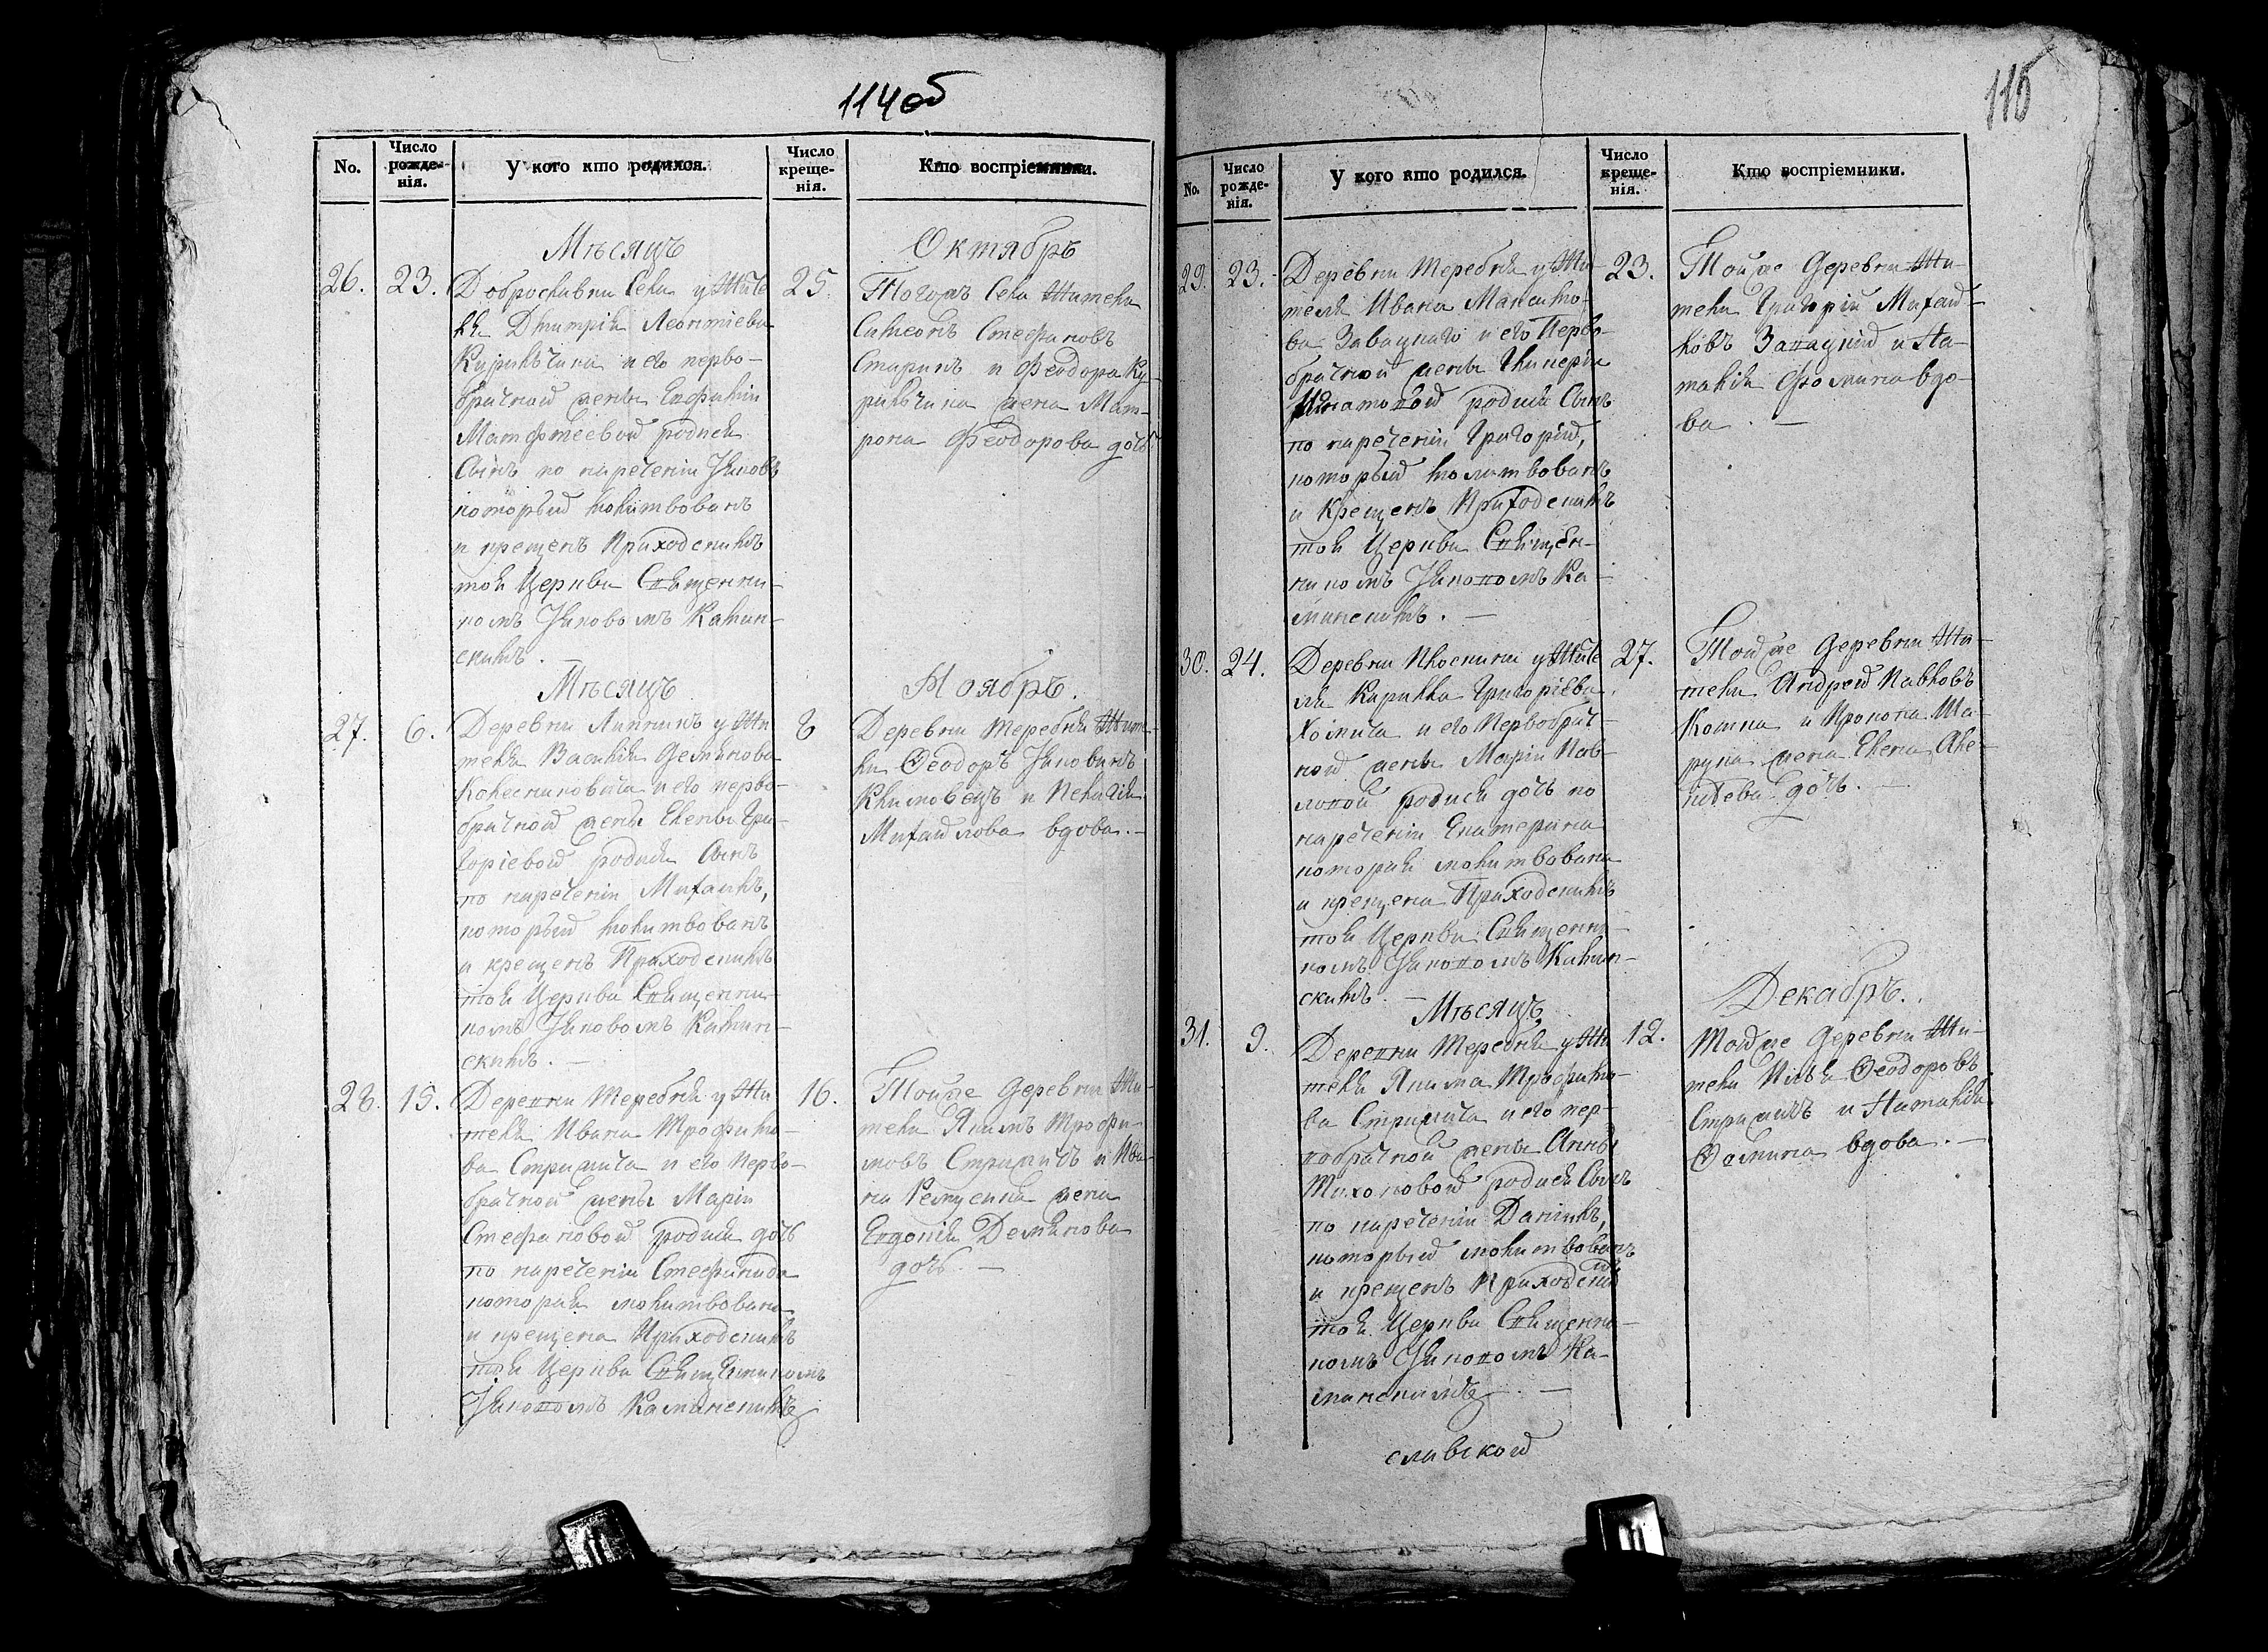 114 об
No.
Число рожденія.
У кого кто родился.
Число крещенія.
Кто воспріемники.
Мѣсяцъ
Октябръ
26.
23.
Доброславки Села у Жите
ля Дмитрія Леонтіева
и его перво-
брачной жены
Матфѣевой родился
Сынъ по нареченіи Іяковъ
который молитвованъ
и крещенъ Приходскимъ
тоя Церкви Священни-
комъ Іяковомъ Камин-
скимъ.
25.
Тогожъ Села Жители
Симеонъ Стефановъ
и Феодора Ку-
жена Мат-
рона Феодорова дочь
Мѣсяцъ
Ноябръ.
27.
6.
Деревни у Жи
теля Василія Демянова
Колесниковича и его перво-
брачной жены Елены Гри-
горіевой родился Сынъ
по нареченіи Михаилъ,
который молитвованъ
и крещенъ Приходскимъ
тоя Церкви Священни-
комъ Іяковомъ Камин-
скимъ.
8
Деревни Теребня Жите-
ли Ѳеодоръ Іяковинъ
Климовецъ и Пелагія
Михайлова вдова.
28.
15.
Деревни Теребня у Жи
теля Ивана Трофимо-
ва Стрижича и его Перво-
брачной жены Маріи
Стефановой родися дочь
по нареченіи Стефанида
которая молитвована
и крещена Приходскимъ
тоя Церкви Священникомъ
Іяковомъ Каминскимъ
16.
Тойже деревни Жи-
тели Якимъ Трофи-
мовъ Стрижичъ и Ива-
на жена
Евдокія Демянова
дочь.
115
No.
Число рожденія.
У кого кто родился.
Число крещенія.
Кто воспріемники.
29.
23.
Деревни Теребня у Жи-
теля Ивана Максимо-
ва Завацкаго и его Перво-
брачной жены Гликеріи
Игнатовой родися Сынъ
по нареченіи Григорій,
который молитвованъ
и Крещенъ Приходскимъ
тоя Церкви Священ-
никомъ Іяковомъ Ка-
минскимъ.
23.
Тойже Деревни Жи-
тели Григорій Михай-
ловъ Завацкій и На-
талія Фомина вдо-
ва.
30.
24.
Деревни Плоскини у Жите
ля Кирилла Григоріева
Хомича и его Первобрач-
ной жены Маріи Пав-
ловой родися дочь по
нареченіи Екатерина
которая молитвована
и крещена Приходскимъ
тоя Церкви Священни-
комъ Іяковомъ Камин-
скимъ.
27.
Тойже деревни Жи-
тели Андрей Павловъ
и Прокопа Ша-
жена Елена Але-
ѣева дочь.
Мѣсяцъ
Декабръ.
31.
9.
Деревни Теребня у Жи
теля Якима Трофимо-
ва Стрижича и его пер-
вобрачной жены Анны
Тихоновой родися Сынъ
по нареченіи Даніилъ,
который молитвованъ
и крещенъ Приходским
тоя Церкви Священни-
комъ Іяковомъ Ка-
минскимъ.
12.
Тойже Деревни Жи-
тели Илья Ѳеодоровъ
Стрижичъ и Наталія
Ѳомина вдова.
славской